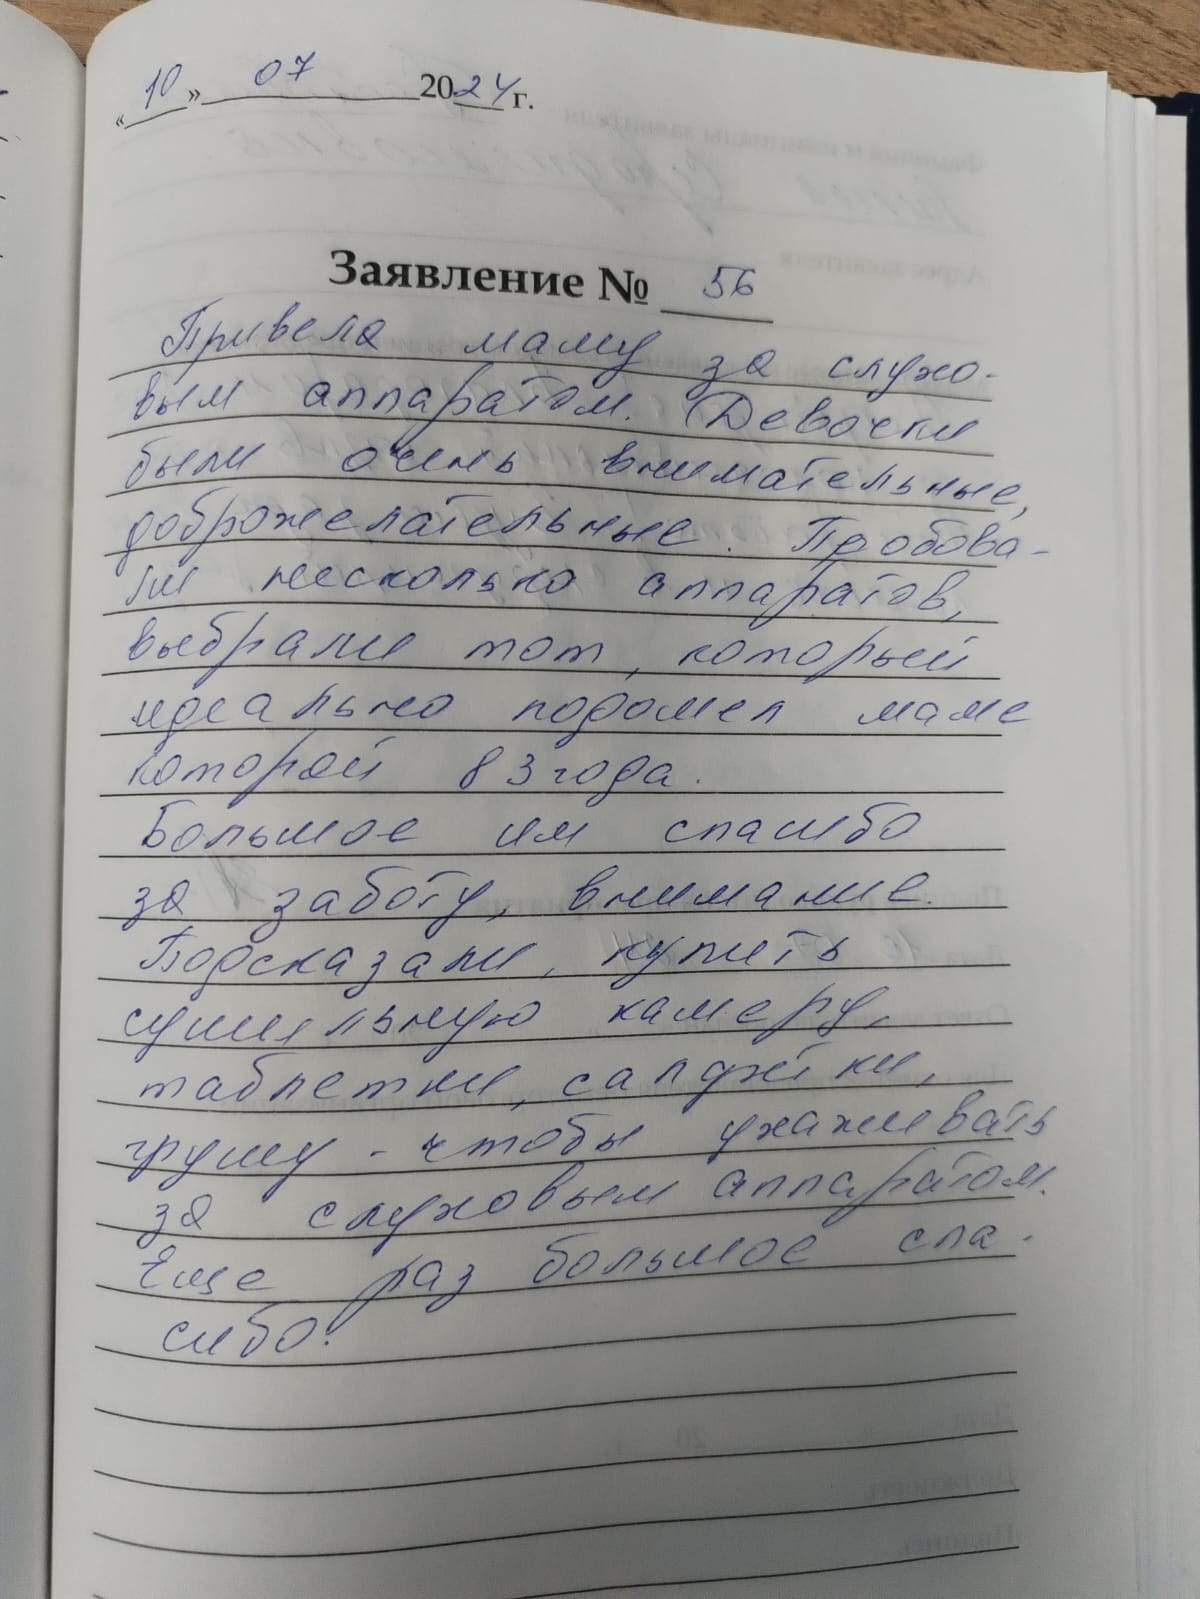 «10» 07 2024 г.
Заявление № 56
Привела маму за слухо-
вым аппаратом. Девочки
были очень внимательные,
доброжелательные. Пробова-
ли несколько аппаратов,
выбрали тот, который
идеально подошел маме
которой 83 года.
Большое им спасибо
за заботу, внимание.
Подсказали, купить
сушильную камеру,
таблетки, салфетки,
грушу - чтобы ухаживать
за слуховым аппаратом.
Еще раз большое спа-
сибо!